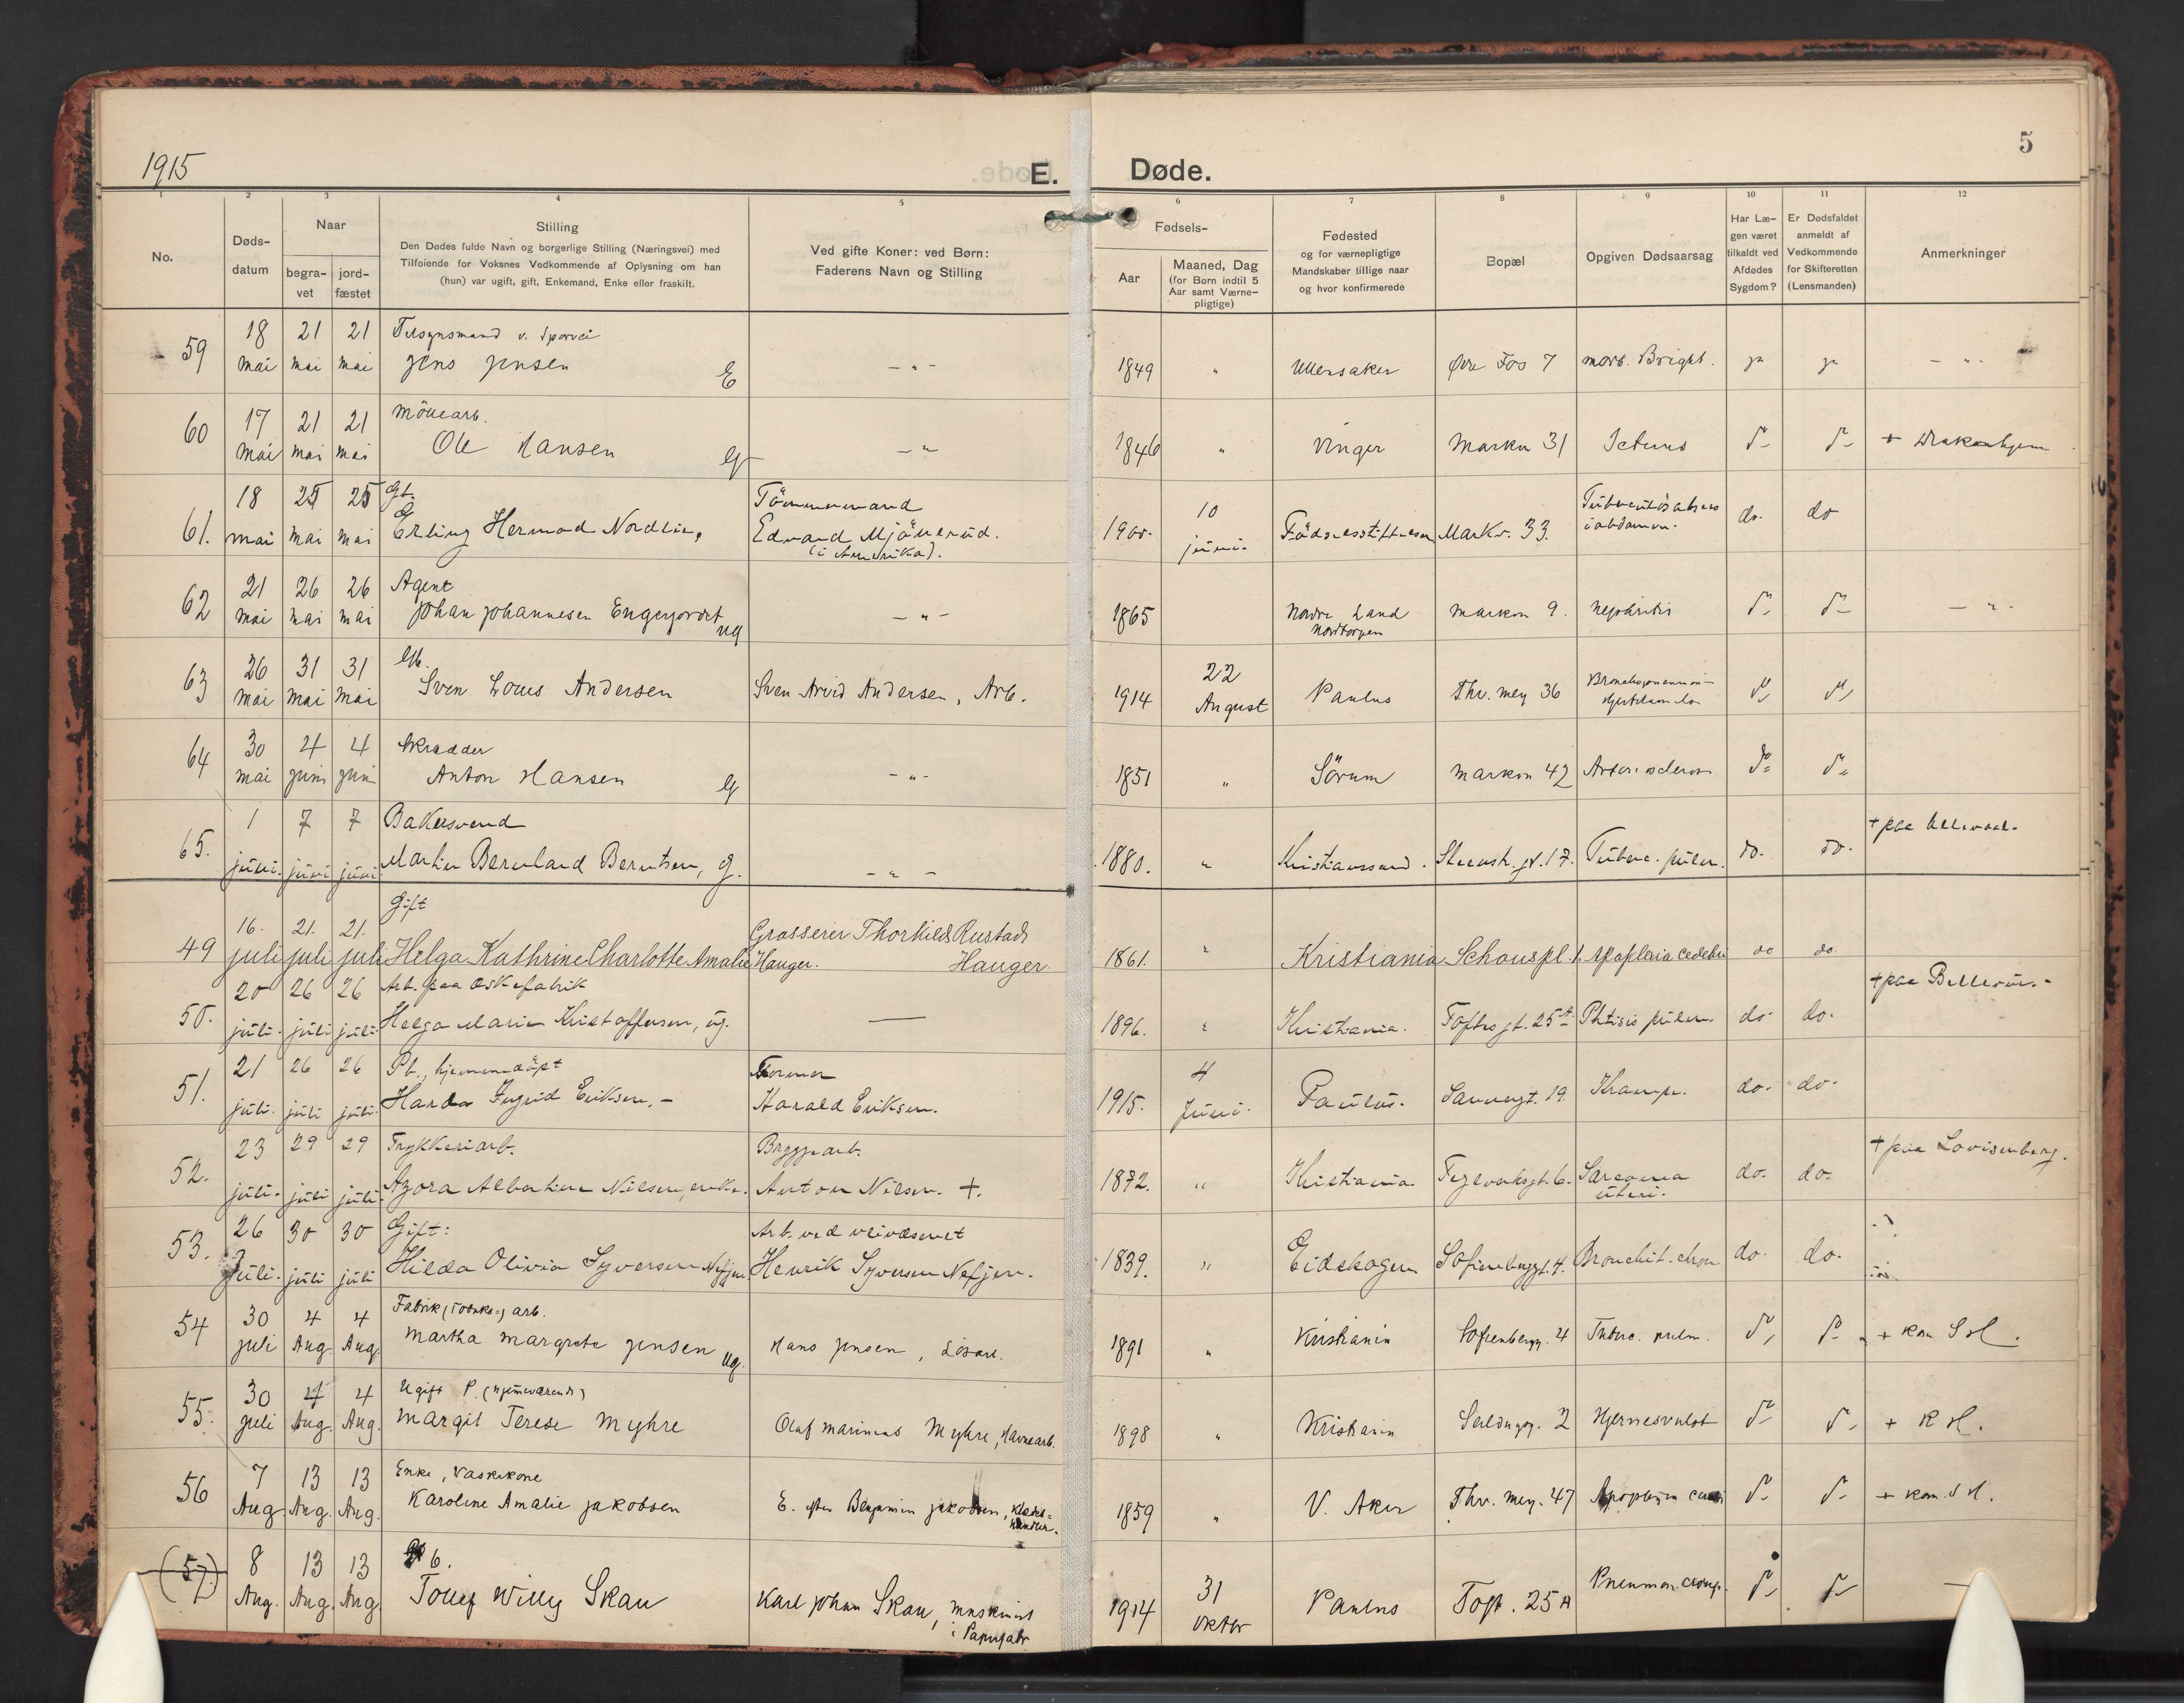 1915
E. Døde.
5
1 2 3 4 5 6 7 8 9 10 11 12
No.
Døds-
datum
Naar
begra-
vet
jord-
fæstet
Stilling
Den Dødes fulde Navn og borgerlige Stilling (Næringsvei) med
Tilføiende for Voksnes Vedkommende af Oplysning om han
(hun) var ugift, gift, Enkemand, Enke eller fraskilt.
Ved gifte Koner: ved Børn:
Faderens Navn og Stilling
Fødsels-
Aar
Maaned, Dag
(for Børn indtil 5
Aar samt Værne-
pligtige)
Fødested
og for værnepligtige
Mandskaber tillige naar
og hvor konfirmerede
Bopæl
Opgiven Dødsaarsag
Har Læ-
gen været
tilkaldt ved
Afdødes
Sygdom?
Er Dødsfaldet
anmeldt af
Vedkommende
for Skifteretten
(Lensmanden)
Anmerkninger
18 21 21 Tilsynsmand v. Sporvei
59 mai mai mai Jens Jensen E - " - 1849 " Ullensaker Øvre Fos 7 morb. Bright. ja ja - " -
17 21 21 Möllearb.
60 mai mai mai Ole Hansen G - " 1846 " Vinger Markvn 31 Icterus do do +
18 25 25 Gt. Tömmermand
61. mai mai mai Erling Hermod Nordlie, Edvard Mjönerud. 1900. 10 juni. Födselsstiftelsen Markv. 33. i abdomen. do. do
(i Amerika).
21 26 26 Agent
62 mai mai mai Johan Johannesen Engejordet ug - " - 1865 Nordre Land Markvn 9. Nephritis do do - " -
Nordtorpen
26 31 31 Gb. 22
63 mai mai mai Sven Louis Andersen Sven Arvid Andersen, Arb. 1914 August Paulus Thv. mey 36 Bronchopneumoni do do
30 4 4 Skrædder
64 mai juni juni Anton Hansen G - " - 1851 " Sörum Markvn 42 Arteriosclerose do do
1 7 7 Bakersvend + paa Ullevaal.
65. juni. juni juni. Martin Bernhard Berntsen, g. - " - 1880. " Kristianssund. Steensh. gt. 17. Tuberc. pulm. do. do.
Gift
16. 21. 21. Grosserer Thorkild Rustad
49 juli juli juli Helga Kathrine Charlotte Amalie Hauger. Hauger. 1861. " Kristiania Schouspl. 1. Apoplexia cerebri do do.
20 26 26 Arb. paa Eskefabrik + paa Bellevue. -
50. juli. juli juli. Helga Marie Kristoffersen, ug. — 1896. " Kristiania. Toftesgt. 25A Phtisis pulm. do. do.
21 26 26 Pb., hjemmedöpt Former 4
51. juli. juli juli. Harda Ingrid Eriksen. - Harald Eriksen. 1915. Juni. Paulus. Sannergt. 19. Krampe. do. do.
23 29 29 Trykkeriarb. Bryggearb. + paa Lovisenberg.
52. juli. juli juli. Azora Albertine Nilsen, enke. Anton Nilsen. +. 1872. " Kristiania Teglverksgt. 6. Sarcoma uteri. do. do.
26 30 30 Gift: Arb. ved veivæsenet
53. juli. juli juli Hilda Olivia Syversen Nefjen. Henrik Syversen Nefjen. 1839. " Eidskogen Sofienberggt. 4. Bronchit. chron do. do.
30 4 4 Fabrik (Tobaks=) arb.
54 juli Aug. Aug. Martha Margrete Jensen ug. Hans Jensen, Lösarb. 1891 " Kristiania Sofienbergg. 4 Tuberc. pulm. do do + Kom S H.
30 4 4 Ugift P. (hjemmeværende)
55. juli Aug. Aug. Margit Terese Myhre Olaf Marinius Myhre, Havnearb. 1898 " Kristiania Seildugsg. 2 Hjernesvulst do do + K H.
7 13 13 Enke, Vaskekone
56 Aug Aug. Aug. Karoline Amalie Jakobsen E. efter Benjamin Jakobsen, Klædes=handler. 1859 " V. Aker Thv. mey. 47 Apoplexia cerebri do do + kom. S H.
8 13 13 Gb. 31
(57) Aug. Aug. Aug. Tollef Willy Skau Karl Johan Skau, maskinist i Papirfabr 1914 Oktbr Paulus Toft. 25A Pneumon. croup. do do —